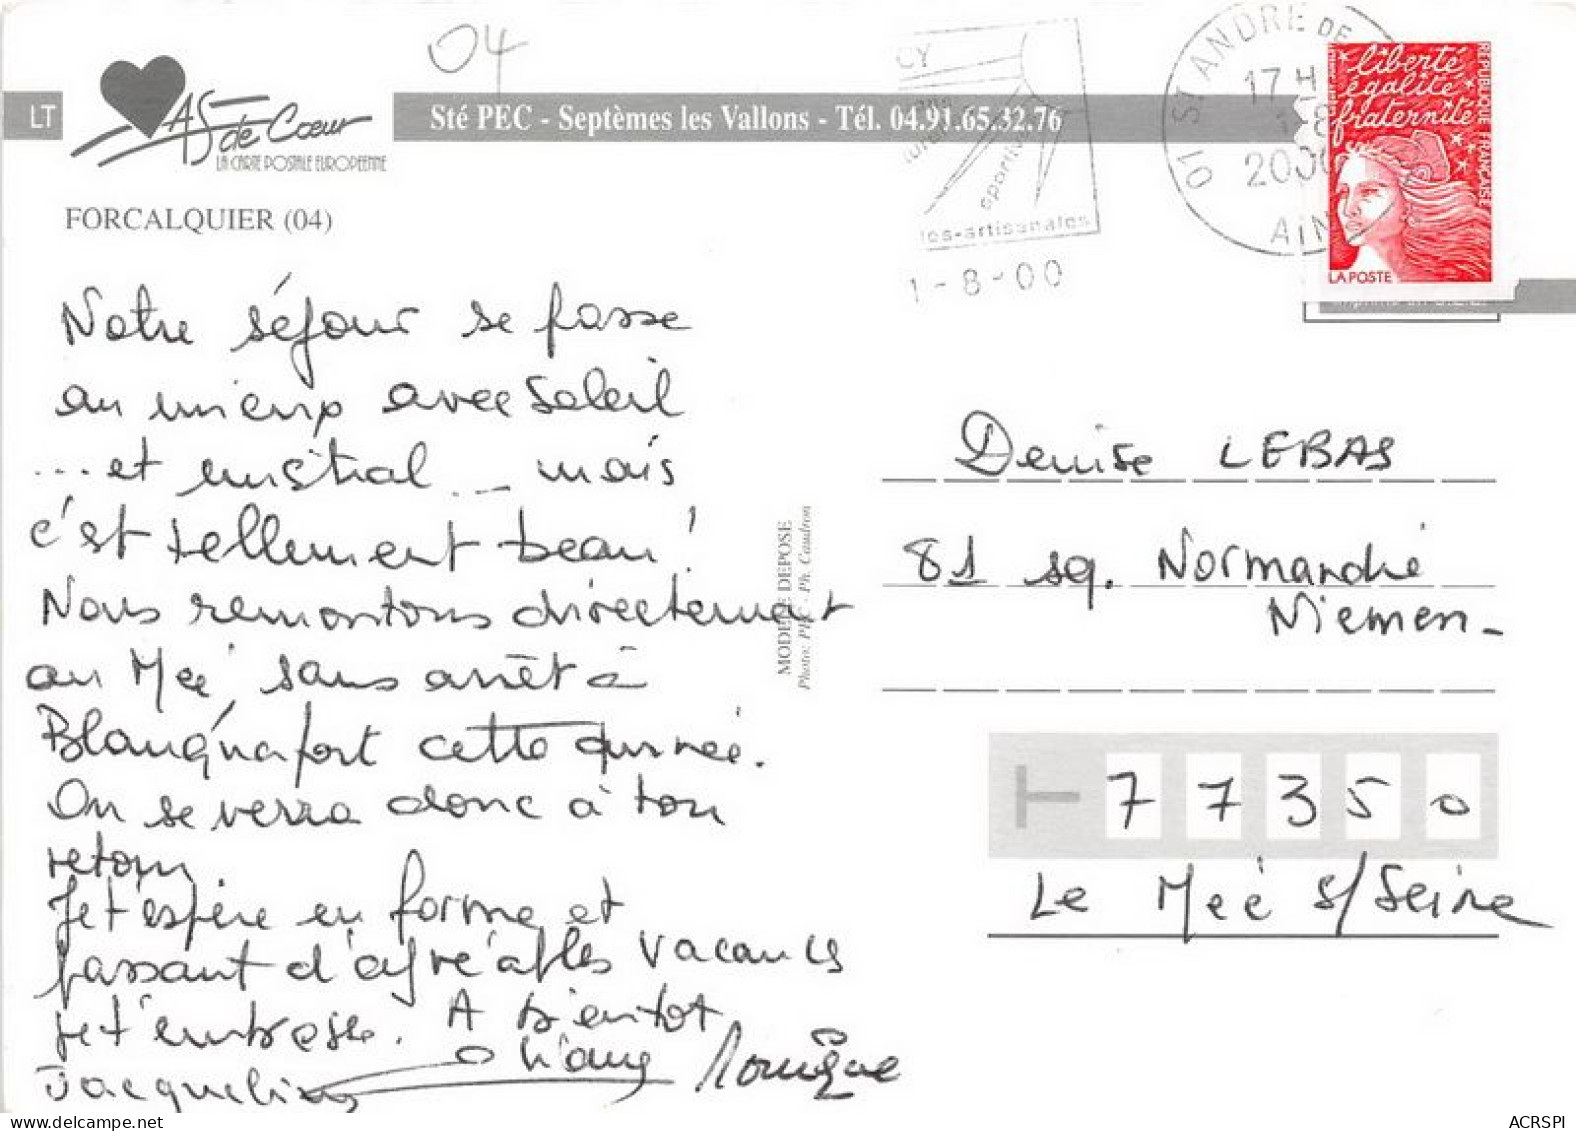 04
LT
AS de Cœur
LA CARTE POSTALE EUROPEENNE
Sté PEC - Septèmes les Vallons - Tél. 04.91.65.32.76
FORCALQUIER (04)
CY
sportiv
les-artisanales
1-8-00
01 ST ANDRE DE
17 H
1-8
2000
AIN
liberté
égalité
fraternité
REPUBLIQUE FRANÇAISE
LA POSTE
Notre séjour se passe
au mieux avec soleil
...et mistral... mais
c'est tellement beau!
Nous remontons directement
au Meé, sans arrêt à
cette année.
On se verra donc à ton
retour.
Je t'espère en forme et
passant d'agréables vacances
je t'embrasse. A bientôt
Jacqueline
Monique
MODELE DEPOSE
Photo: PEC - Ph. Caudron
Denise LEBAS
81 sq. Normandie
Niemen-
77350
Le Meé s/Seine
ACRSPI